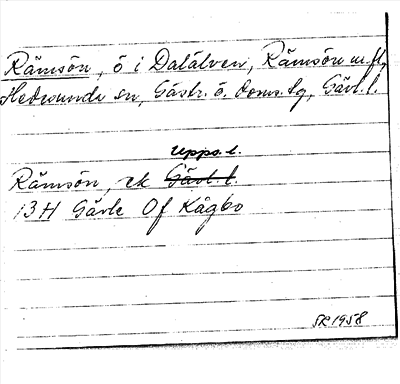 Rämsön, ö i Dalälven, Rämsön m.fl.,
Hedesunda sn, Gästr. ö. doms. tg, Gävl. l.
Upps. l.
Rämsön, ek Gävl. l.
13H Gävle 0f Kågbo
SR 1958